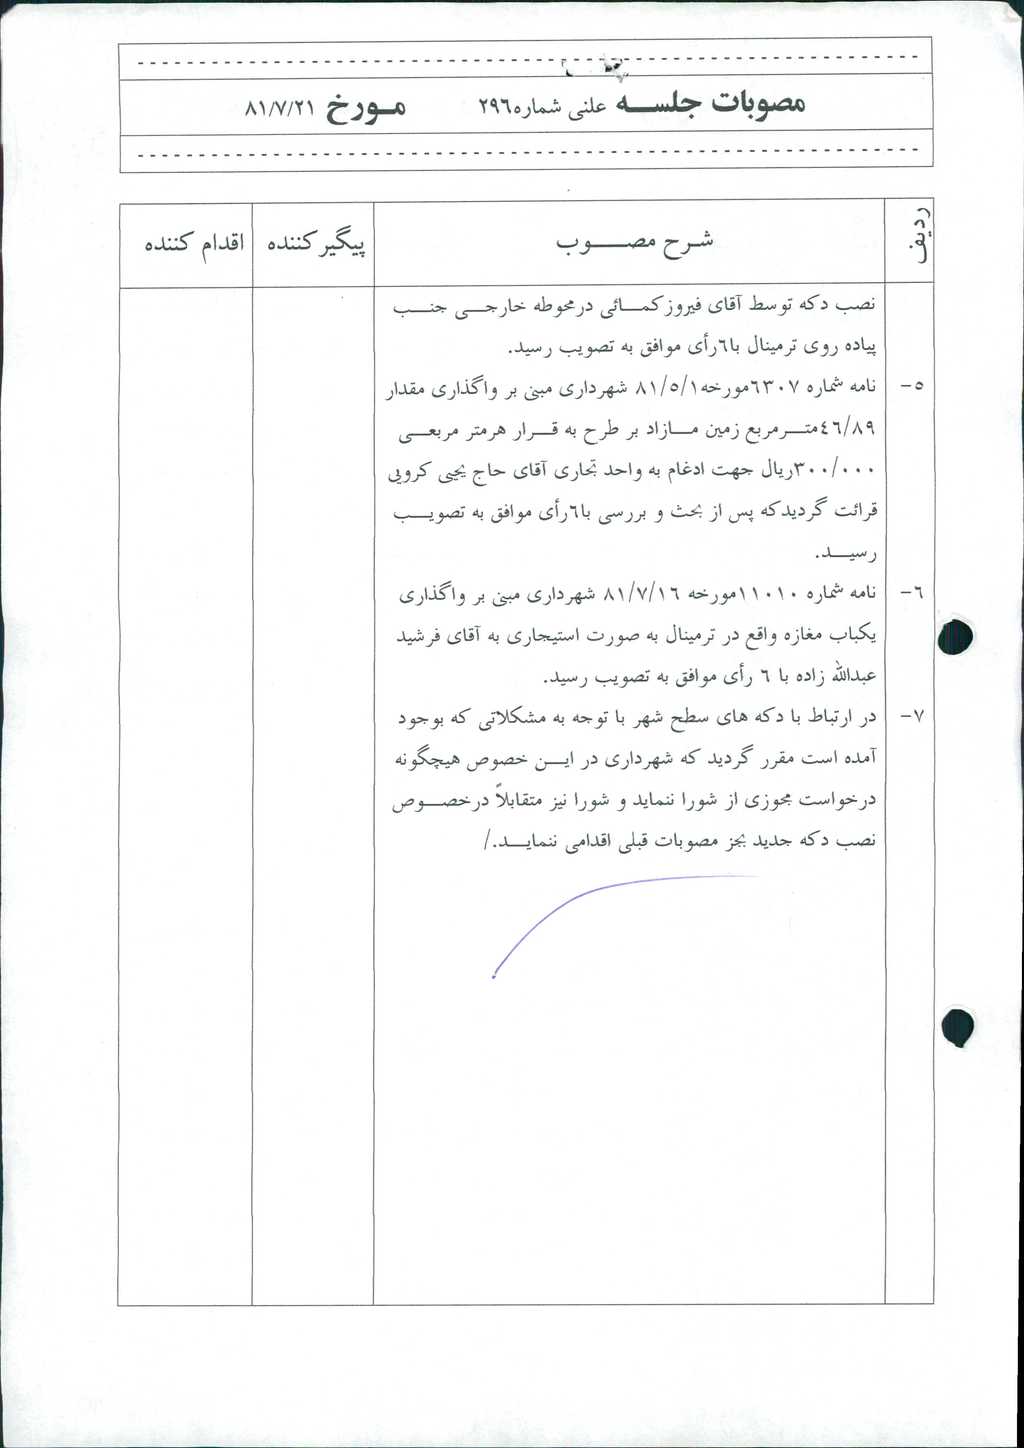 مصوبات جلسه علنی شماره ۲۹۶ مورخ ۸۱/۷/۲۱
ردیف شرح مصوب پیگیرکننده اقدام کننده
نصب دکه توسط آقای فیروزکمائی درمحوطه خارجی جنب
پیاده روی ترمینال با٦رأی موافق به تصویب رسید.
۵- نامه شماره ٦۳۰۷مورخه۸۱/۵/۱ شهرداری مبنی بر واگذاری مقدار
٤٦/۸۹مترمربع زمین مازاد بر طرح به قرار هرمتر مربعی
۳۰۰/۰۰۰ریال جهت ادغام به واحد تجاری آقای حاج یحیی کرویی
قرائت گردیدکه پس از بحث و بررسی با٦رأی موافق به تصویب
رسید.
٦- نامه شماره ۱۱۰۱۰مورخه ۸۱/۷/۱٦ شهرداری مبنی بر واگذاری
یکباب مغازه واقع در ترمینال به صورت استیجاری به آقای فرشید
عبدالله زاده با ٦ رأی موافق به تصویب رسید.
۷- در ارتباط با دکه های سطح شهر با توجه به مشکلاتی که بوجود
آمده است مقرر گردید که شهرداری در این خصوص هیچگونه
درخواست مجوزی از شورا ننماید و شورا نیز متقابلاً درخصوص
نصب دکه جدید بجز مصوبات قبلی اقدامی ننماید./